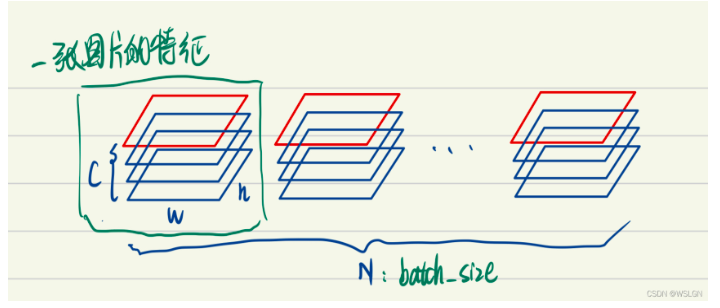 一张图片的特征
C
h
W
...
N: batch_size
CSDN @WSLGN